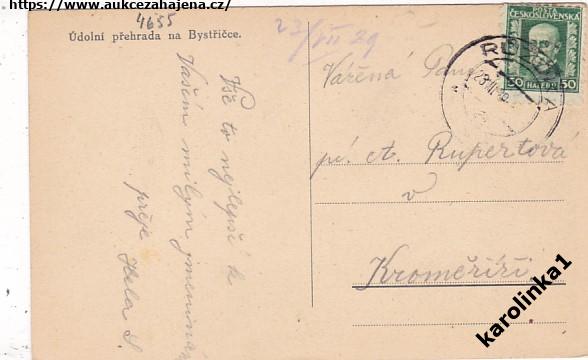 https://www.aukcezahajena.cz/
4655
Údolní přehrada na Bystřičce.
23/VII 29
POŠTA
ČESKOSLOVENSKÁ
50 HALÉŘŮ 50
Vše to nejlepší k
Vašim milým jmeninám
přeje Hela S.
Vážená Paní
pí. A. Rupertová
v
Kroměříži
karolinka1